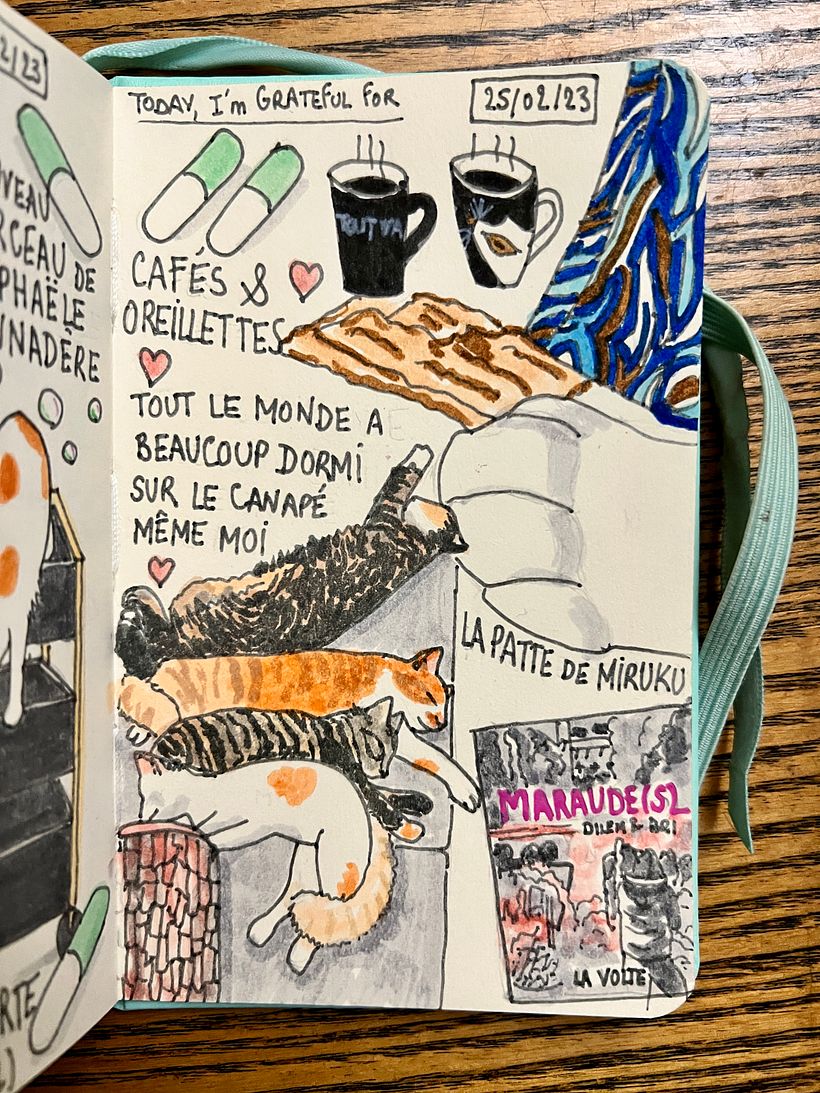 2/23
UVEAU
RCEAU DE
PHAËLE
NADÈRE
RTE
TODAY, I'm GRATEFUL FOR
25/02/23
TOUT VA
CAFÉS &
OREILLETTES
TOUT LE MONDE A
BEAUCOUP DORMI
SUR LE CANAPÉ
MÊME MOI
LA PATTE DE MIRUKU
MARAUDE(S)
DILEM &
LA VOLTE